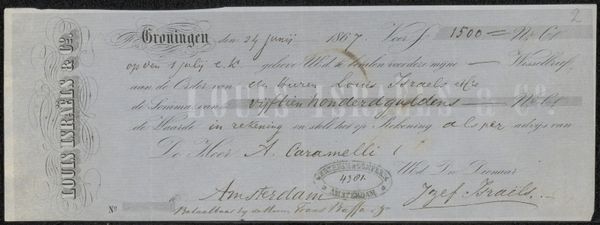 2
LOUIS ISRAËLS & Co.
Groningen den 24 Junij 1867 Voor ƒ 1500 = Ns Ct
op den 1 Julij e.k. gelieve UEd. te betalen voor deze mijne Wisselbrief
aan de Order van de Heeren Louis Israels & Co
de Somma van vijftienhonderd guldens Ns Ct
LOUIS ISRAËLS & Co.
de Waarde in rekening en stel het op Rekening als per advijs van
De Heer A. Caramelli
UEd. Dw. Dienaar
4381
AMSTERDAM
Amsterdam Jozef Israels
No Betaalbaar bij de Heeren